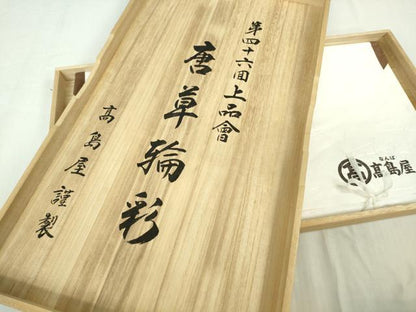 第四十六回上品會
唐草輪彩
髙島屋謹製
なんば
髙 髙島屋